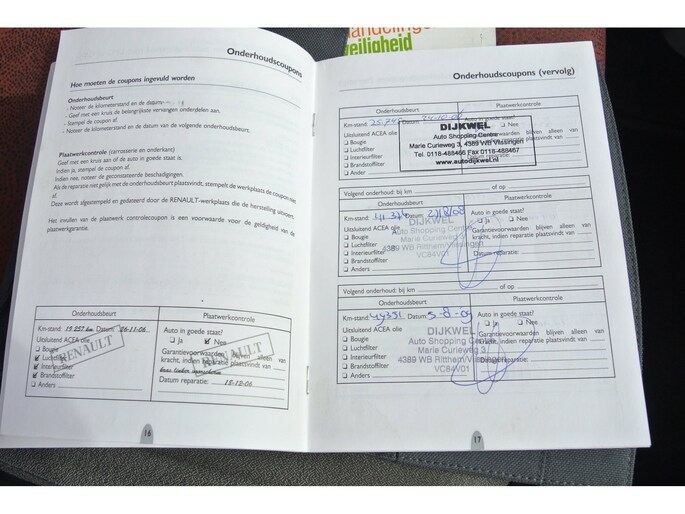 handelings
veiligheid
Onderhoudscoupons
Hoe moeten de coupons ingevuld worden
Onderhoudsbeurt
- Noteer de kilometerstand en de datum
- Geef met een kruis de belangrijkste vervangen onderdelen aan.
- Stempel de coupon af.
- Noteer de kilometerstand en de datum van de volgende onderhoudsbeurt.
Plaatwerkcontrole (carrosserie en onderkant)
Geef met een kruis aan of de auto in goede staat is.
Indien ja, stempel de coupon af.
Indien nee, noteer de geconstateerde beschadigingen.
Als de reparatie niet gelijk met de onderhoudsbeurt plaatsvindt, stempelt de werkplaats de coupon niet
af.
Deze wordt afgestempeld en gedateerd door de RENAULT-werkplaats die de herstelling uitvoert.
Het invullen van de plaatwerk controlecoupon is een voorwaarde voor de geldigheid van de
plaatwerkgarantie.
Onderhoudsbeurt Plaatwerkcontrole
Km-stand: 19 257 km Datum: 06-11-06 Auto in goede staat?
Uitsluitend ACEA olie Ja Nee
Bougie Garantievoorwaarden blijven alleen van
Luchtfilter kracht, indien reparatie plaatsvindt van
Interieurfilter
Brandstoffilter Datum reparatie: 18-12-06
Anders
RENAULT
RENAULT
16
Onderhoudscoupons (vervolg)
Onderhoudsbeurt Plaatwerkcontrole
Km-stand Datum
Uitsluitend ACEA olie Nee
Bougie
Luchtfilter
Interieurfilter
Brandstoffilter
Anders
DIJKWEL
Auto Shopping Centre
Marie Curieweg 3, 4389 WB Vlissingen
Tel. 0118-488466 Fax 0118-488467
www.autodijkwel.nl
Volgend onderhoud: bij km of op
Onderhoudsbeurt Plaatwerkcontrole
Km-stand Datum Auto in goede staat?
Uitsluitend ACEA olie Ja Nee
Bougie Garantievoorwaarden blijven alleen van
Luchtfilter kracht, indien reparatie plaatsvindt van
Interieurfilter
Brandstoffilter Datum reparatie:
Anders
DIJKWEL
Auto Shopping Centre
Marie Curieweg 3
4389 WB Ritthem/Vlissingen
VC84V01
Volgend onderhoud: bij km of op
Onderhoudsbeurt Plaatwerkcontrole
Km-stand 44351 Datum 5-8-09 Auto in goede staat?
Uitsluitend ACEA olie Ja Nee
Bougie Garantievoorwaarden blijven alleen van
Luchtfilter kracht, indien reparatie plaatsvindt van
Interieurfilter
Brandstoffilter Datum reparatie:
Anders
DIJKWEL
Auto Shopping Centre
Marie Curieweg 3
4389 WB Ritthem/Vlissingen
VC84V01
17